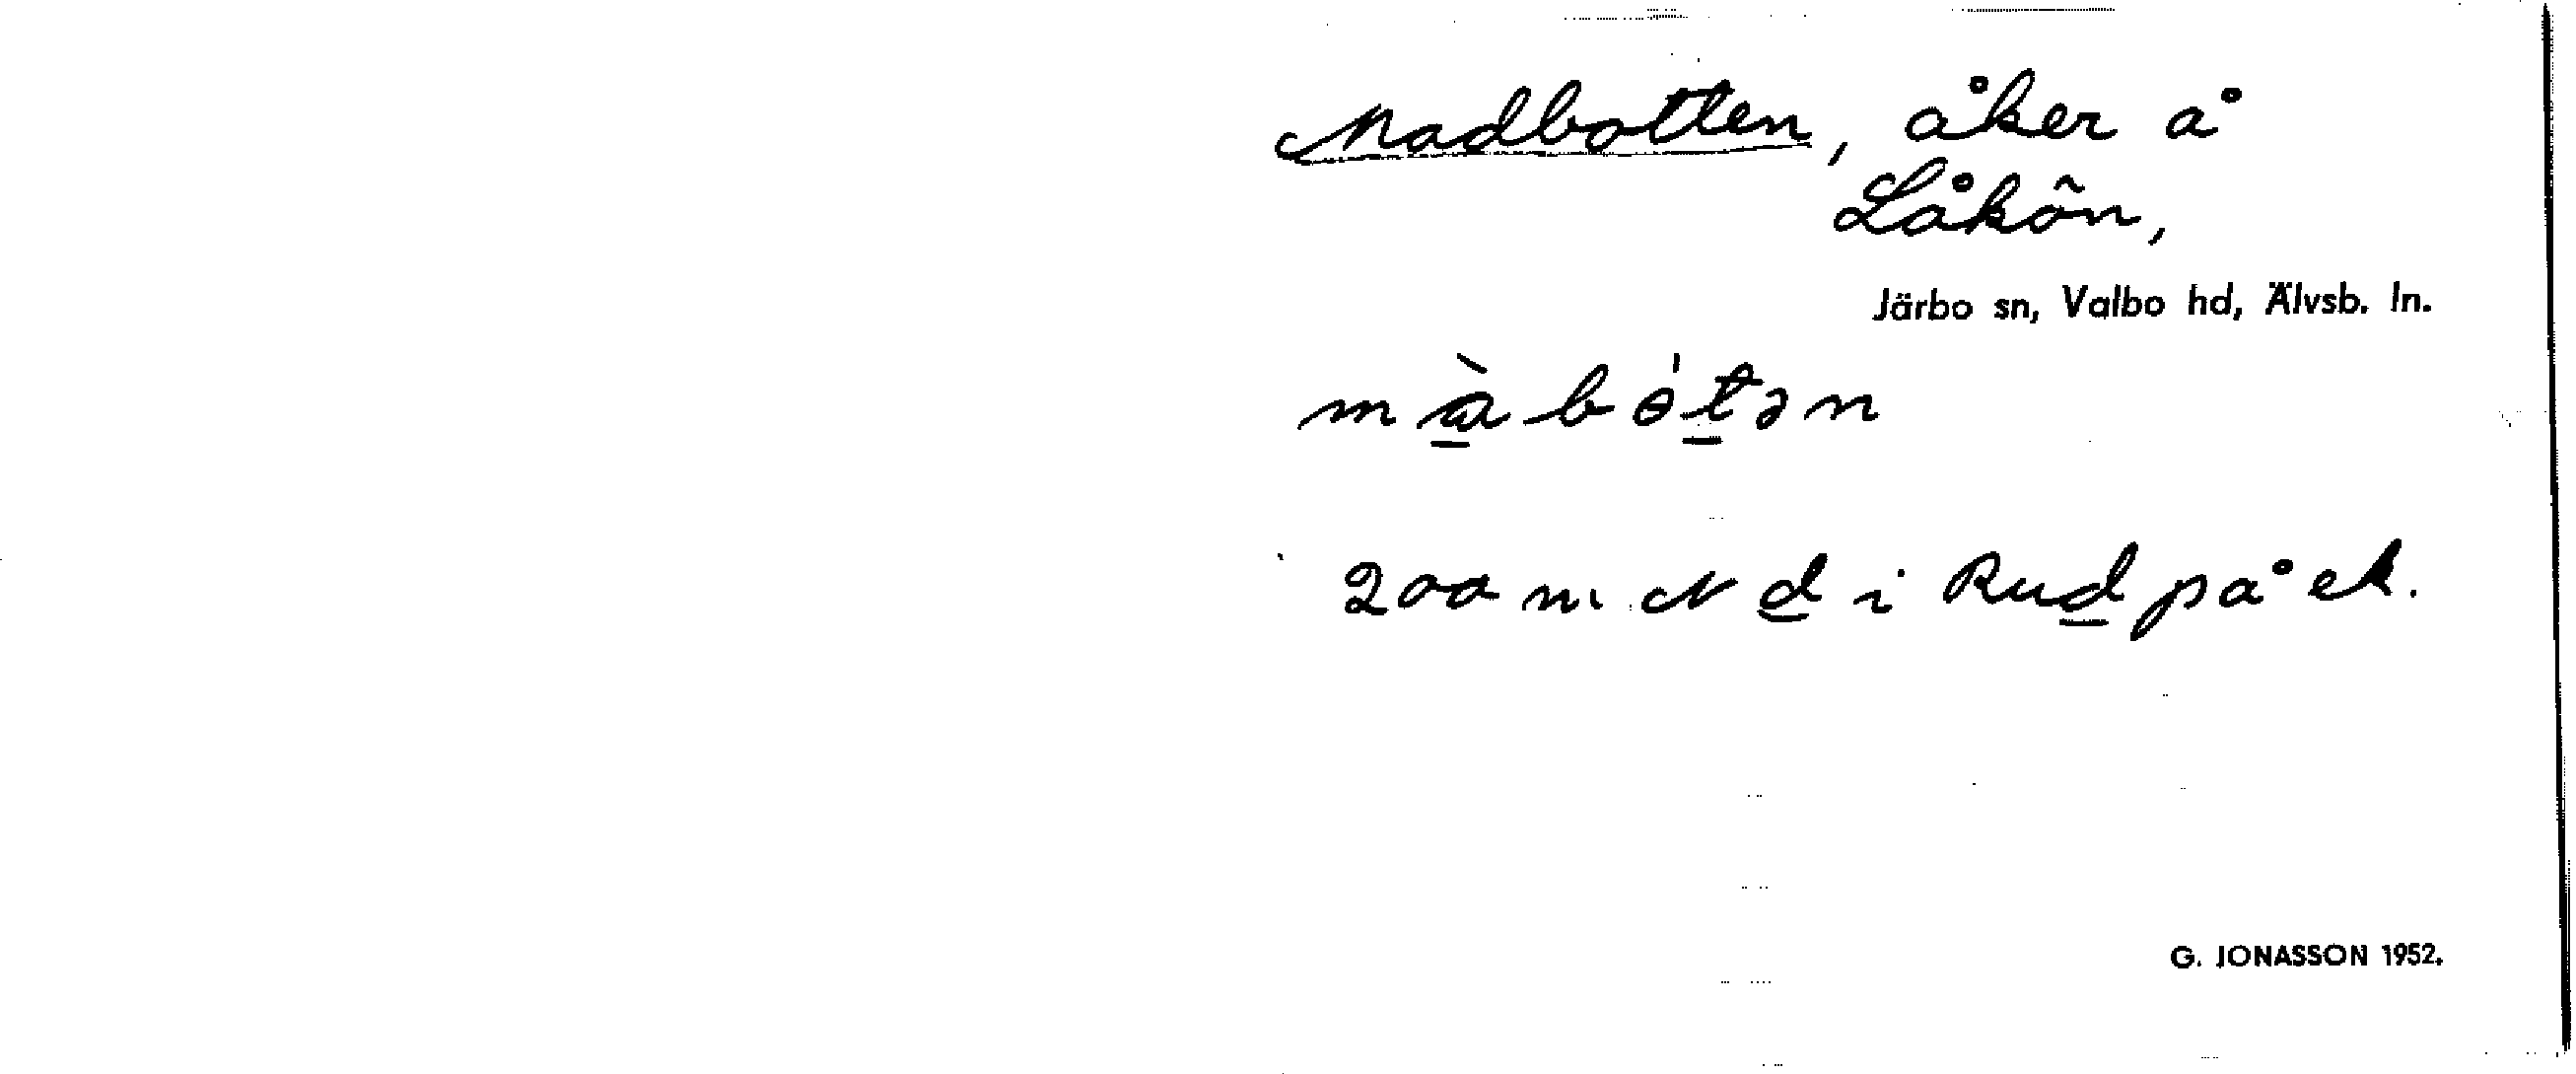 Madbotten, åker å
Låkön,
Järbo sn, Valbo hd, Älvsb. ln.
mà̱bót̲ən
200 m N d̲ i Rud̲ på ek.
G. JONASSON 1952.